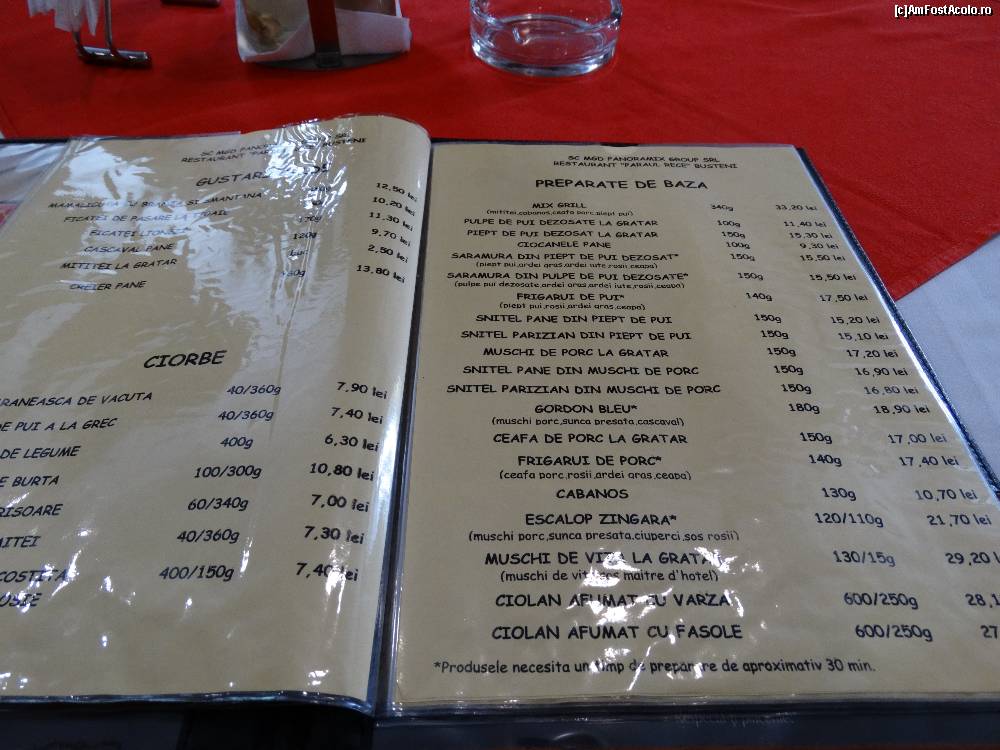 [c]AmFostAcolo.ro
SC MGD SRL
RESTAURANT BUSTENI
12,50 lei
FICATEI DE PASARE LA 10,20 lei
FICATEI 170g 11,30 lei
CASCAVAL PANE 120g 9,70 lei
MITITEI LA GRATAR 2,50 lei
CREIER PANE 13,80 lei
CIORBE
RANEASCA DE VACUTA 40/360g 7,90 lei
DE PUI A LA GREC 40/360g 7,40 lei
DE LEGUME 400g 6,30 lei
E BURTA 100/300g 10,80 lei
RISOARE 60/340g 7,00 lei
MITEI 40/360g 7,30 lei
COSTITA 400/150g 7,40 lei
USIE
SC MGD PANORAMIX GROUP SRL
RESTAURANT "PARAUL RECE" BUSTENI
PREPARATE DE BAZA
MIX GRILL 340g 33,20 lei
(mititei,cabanos,ceafa porc,piept pui)
PULPE DE PUI DEZOSATE LA GRATAR 100g 11,40 lei
PIEPT DE PUI DEZOSAT LA GRATAR 150g 15,30 lei
CIOCANELE PANE 100g 9,30 lei
SARAMURA DIN PIEPT DE PUI DEZOSAT* 150g 15,50 lei
(piept pui,ardei gras,ardei iute,rosii,ceapa)
SARAMURA DIN PULPE DE PUI DEZOSATE* 150g 15,50 lei
(pulpe pui dezosate,ardei gras,ardei iute,rosii,ceapa)
FRIGARUI DE PUI* 140g 17,50 lei
(piept pui,rosii,ardei gras,ceapa)
SNITEL PANE DIN PIEPT DE PUI 150g 15,20 lei
SNITEL PARIZIAN DIN PIEPT DE PUI 150g 15,10 lei
MUSCHI DE PORC LA GRATAR 150g 17,20 lei
SNITEL PANE DIN MUSCHI DE PORC 150g 16,90 lei
SNITEL PARIZIAN DIN MUSCHI DE PORC 150g 16,80 lei
GORDON BLEU* 180g 18,90 lei
(muschi porc,sunca presata,cascaval)
CEAFA DE PORC LA GRATAR 150g 17,00 lei
FRIGARUI DE PORC* 140g 17,40 lei
(ceafa porc,rosii,ardei gras,ceapa)
CABANOS 130g 10,70 lei
ESCALOP ZINGARA* 120/110g 21,70 lei
(muschi porc,sunca presata,ciuperci,sos rosii)
MUSCHI DE VITA LA GRATAR 130/15g 29,20 l
(muschi de vita, maitre d'hotel)
CIOLAN AFUMAT CU VARZA 600/250g 28,1
CIOLAN AFUMAT CU FASOLE 600/250g 27
*Produsele necesita un timp de preparare de aproximativ 30 min.